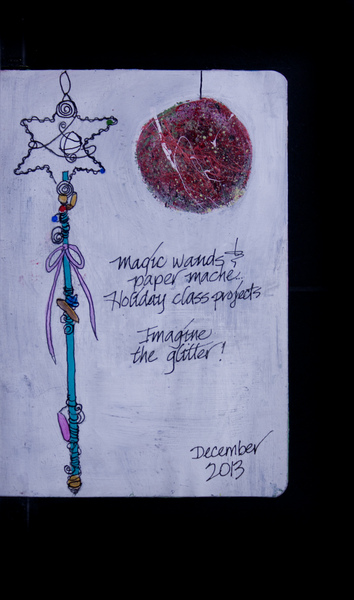 magic wands &
paper mache
Holiday class projects
Imagine
the glitter!
December
2013